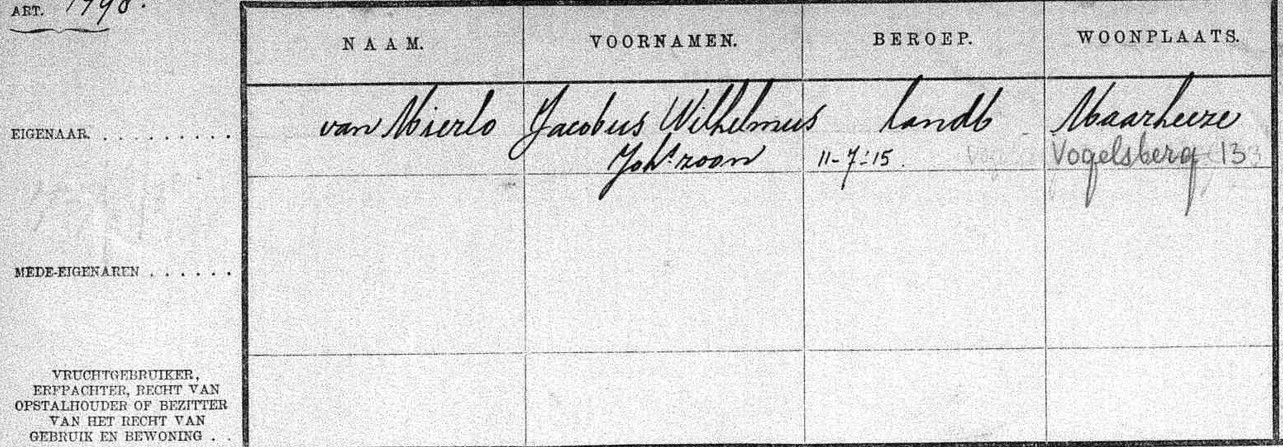 ART. 1798.
NAAM. VOORNAMEN. BEROEP. WOONPLAATS.
EIGENAAR. . . . . . . . . . van Mierlo Jacobus Wilhelmus landb Maarheeze
Johs. zoon 11-7-15. Vogelsberg 13
MEDE-EIGENAREN . . . . . .
VRUCHTGEBRUIKER,
ERFPACHTER, RECHT VAN
OPSTALHOUDER OF BEZITTER
VAN HET RECHT VAN
GEBRUIK EN BEWONING . .